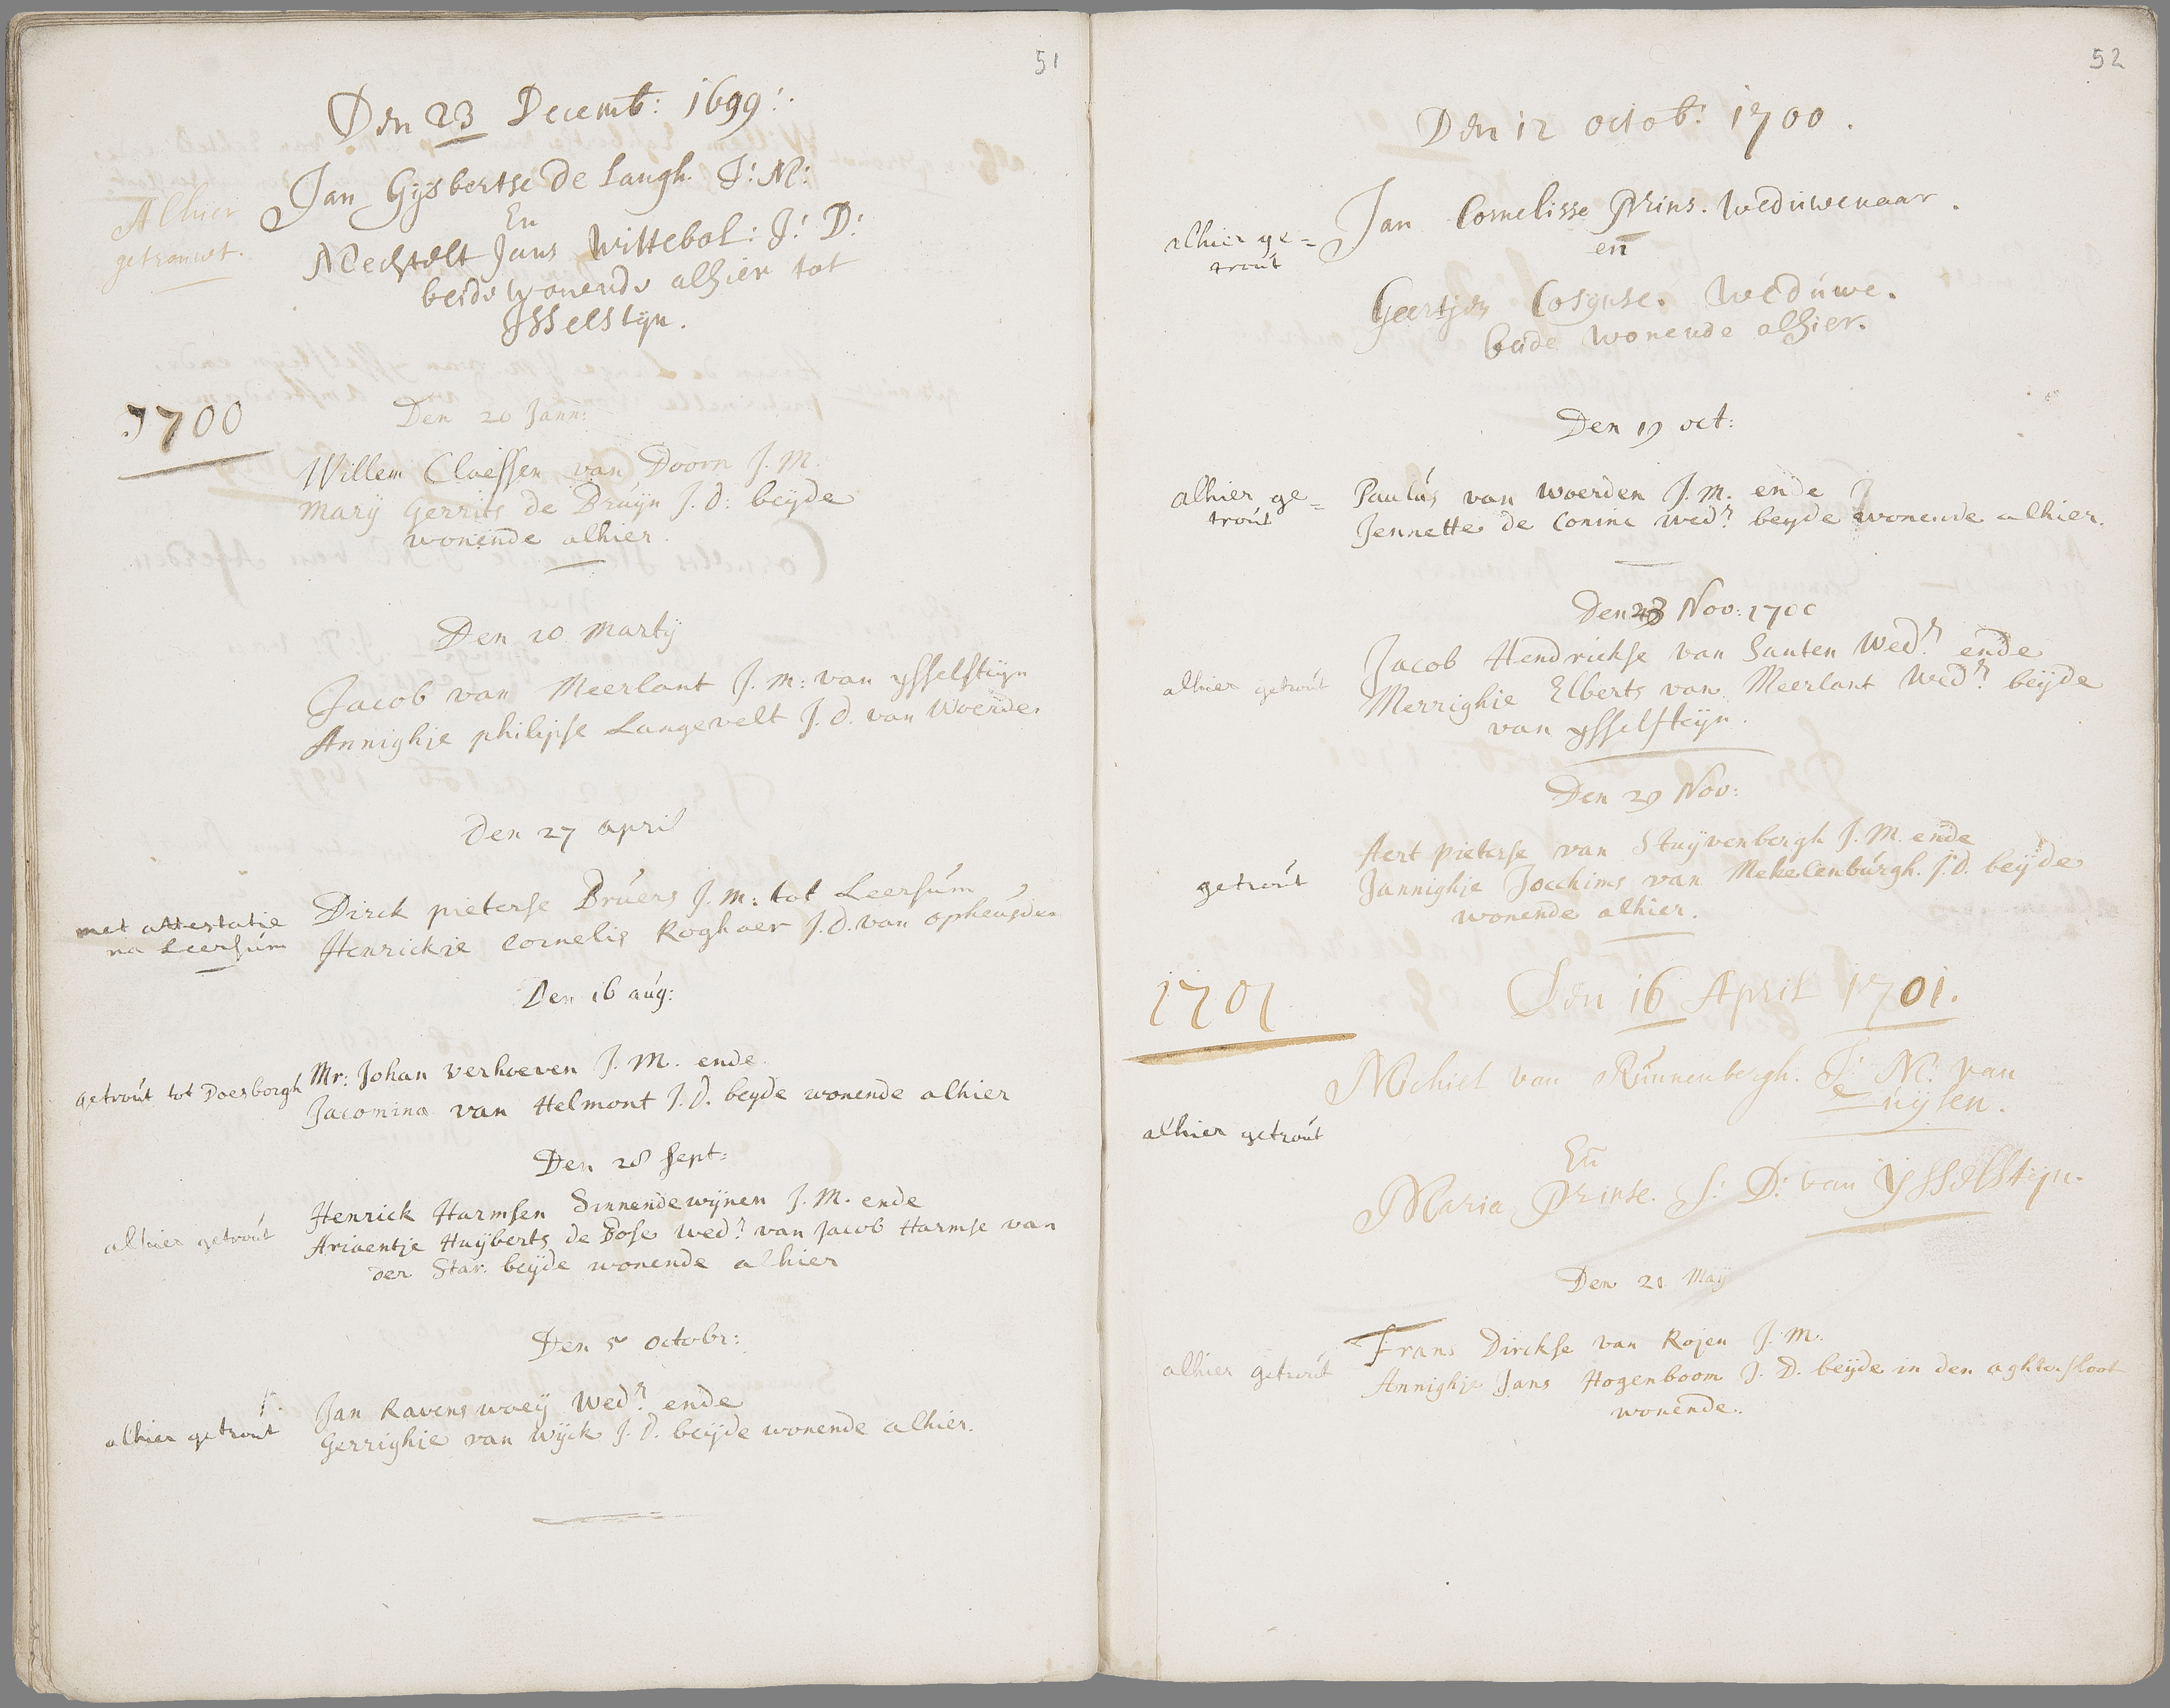 51
Den 23 Decemb: 1699:
Jan Gysbertse de Langh. J: M:
En
Alhier
getrouwt.
Mechtelt Jans Wittebol: J: D:
beide wonende alhier tot
Ysselstyn.
1700
Den 20 Jann:
Willem Claessen van Doorn J. M.
Marij Gerrits de Bruijn J. D: beyde
wonende alhier.
Den 20 Martij
Jacob van Meerlant J. M: van ysselstijn
Annighje philipse Langevelt J. D. van Woerde.
Den 27 april
met attestatie
na Leersum
Dirck pieterse Bruers J. M: tot Leersum
Henrickje Cornelis Roghaer J. D. van opheusden
Den 16 aug:
getrout tot Doesborgh
Mr: Johan verhoeven J. M. ende
Jacomina van Helmont J. D. beyde wonende alhier
Den 28 Sept:
alhier getrout
Henrick Harmsen Sinnendewijnen J. M. ende
Ariaentje Huijberts de Bose wed: van Jacob Harmse van
der Star. beijde wonende alhier
Den 5 octobr:
alhier getrout
Jan Ravenswaeij Wedr ende
Gerrighje van Wijck J. D. beijde wonende alhier.
52
Den 12 octob: 1700.
alhier ge=
trout
Jan Cornelisse Prins. Weduwenaar.
en
Geertjen Cosynse. Weduwe.
beide wonende alhier.
Den 19 oct:
alhier ge=
trout
Paulus van Woerden J. M. ende
Jennette de Coninc wedr beyde wonende alhier.
Den 23 Nov: 1700
alhier getrout
Jacob Hendrickse van Santen Wedr ende
Merrighje Elberts van Meerlant Wedr beijde
van ysselsteijn.
Den 29 Nov:
getrout
Aert pieterse van Stuyvenbergh J. M. ende
Jannighje Jocchims van Mekelenburgh. J. D. beijde
wonende alhier.
1701
Den 16 April 1701.
alhier getrout
Michiel van Runnenbergh. J: M: van
uijlen.
En
Maria Prinse. J: D: van Ysselstijn.
Den 21 Maij
alhier getrout
Frans Dirckse van Rojen J. M.
Annighje Jans Hogenboom J. D. beijde in den aghtersloot
wonende.